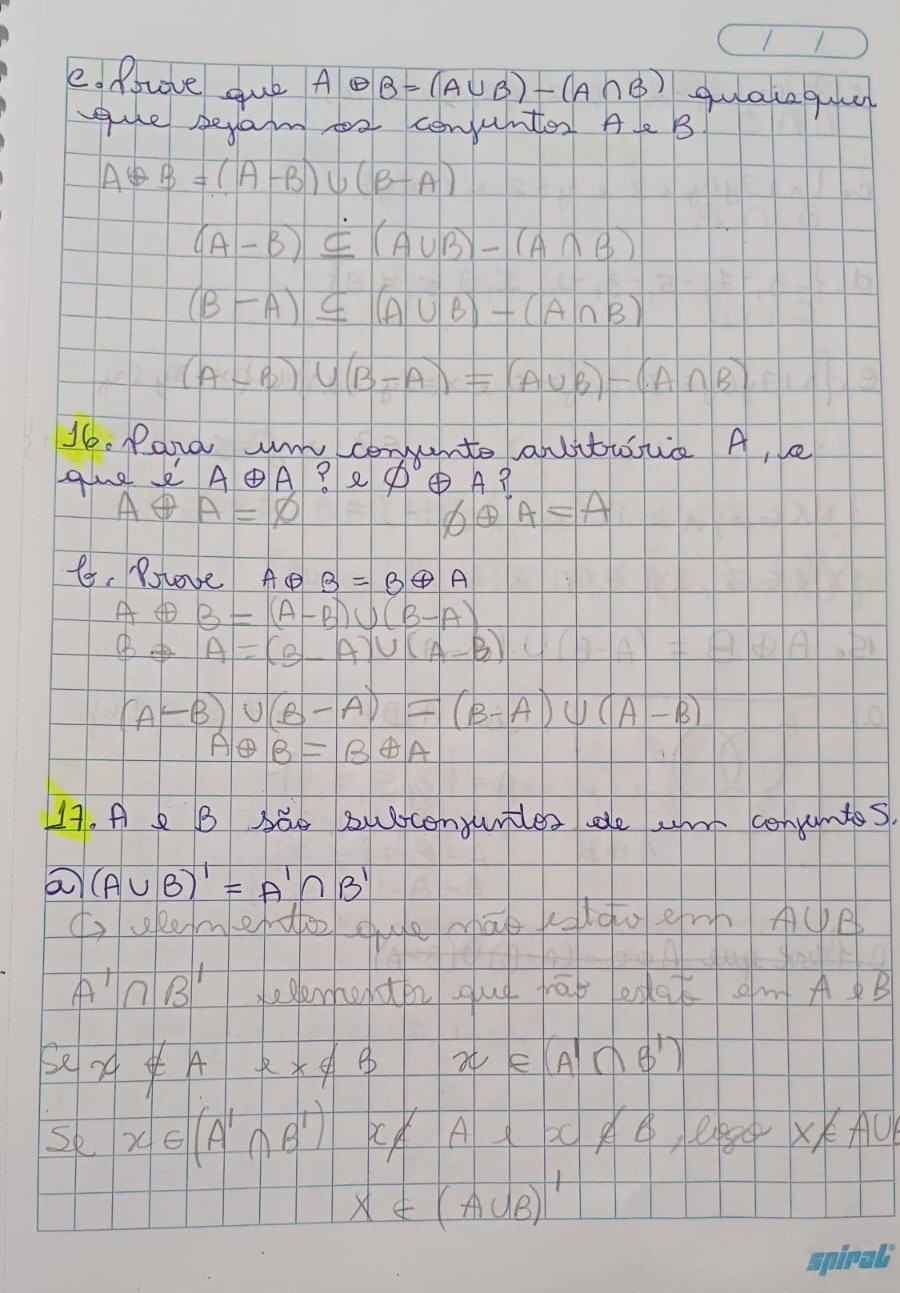 c. Prove que A ⊕ B = (A ∪ B) - (A ∩ B) quaisquer
que sejam os conjuntos A e B.
A ⊕ B = (A - B) ∪ (B - A)
(A - B) ⊆ (A ∪ B) - (A ∩ B)
(B - A) ⊆ (A ∪ B) - (A ∩ B)
(A - B) ∪ (B - A) = (A ∪ B) - (A ∩ B)
16. Para um conjunto arbitrário A, o
que é A ⊕ A? e ∅ ⊕ A?
A ⊕ A = ∅ ∅ ⊕ A = A
b. Prove A ⊕ B = B ⊕ A
A ⊕ B = (A - B) ∪ (B - A)
B ⊕ A = (B - A) ∪ (A - B)
(A - B) ∪ (B - A) = (B - A) ∪ (A - B)
A ⊕ B = B ⊕ A
17. A e B são subconjuntos de um conjunto S.
a) (A ∪ B)' = A' ∩ B'
↳ elementos que não estão em A ∪ B
A' ∩ B' elementos que não estão em A e B
Se x ∉ A e x ∉ B x ∈ (A' ∩ B')
Se x ∈ (A' ∩ B') x ∉ A e x ∉ B, logo x ∉ A ∪ B
x ∈ (A ∪ B)'
spiral